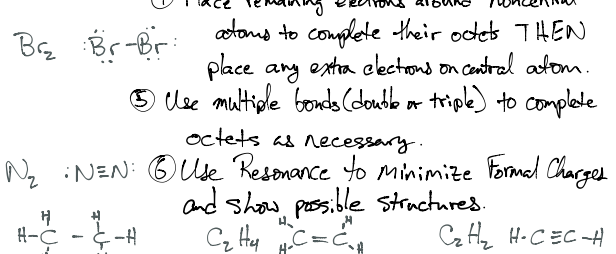 ④ Place remaining electrons around noncentral
Br₂ :Br-Br: atoms to complete their octets THEN
place any extra electrons on central atom.
⑤ Use multiple bonds (double or triple) to complete
octets as necessary.
N₂ :N≡N: ⑥ Use Resonance to Minimize Formal Charges
and show possible structures.
H H H H
H-C-C-H C₂H₄ C=C C₂H₂ H-C≡C-H
H H